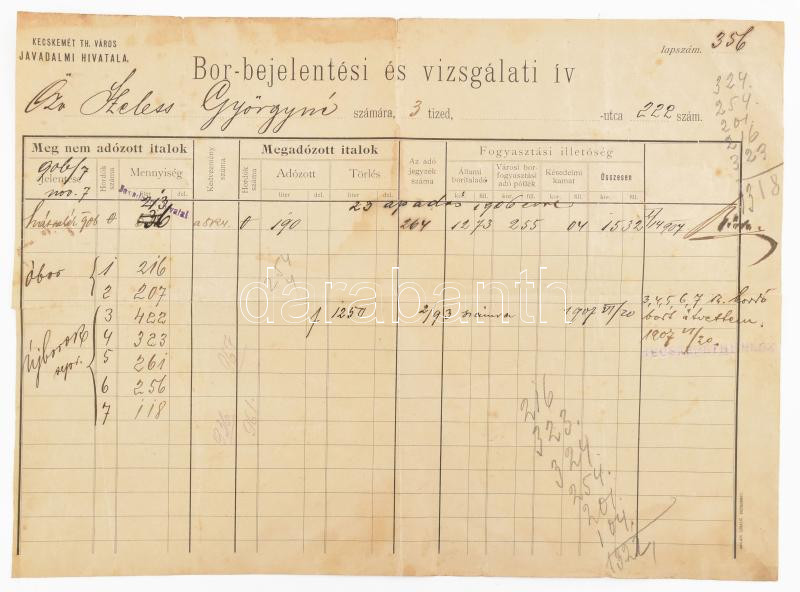 KECSKEMÉT TH. VÁROS
JAVADALMI HIVATALA.
lapszám. 356
Bor-bejelentési és vizsgálati ív
Özv Szeless Györgyné számára, 3 tized, -utca 222 szám.
324.
254.
201.
216
323
1318
Meg nem adózott italok Megadózott italok Fogyasztási illetőség
906/7 Jelentés nov. 7
Hordók száma Mennyiség liter del.
Kedvezmény száma Hordók száma Adózott liter del. Törlés liter del.
Az adó jegyzék száma Állami boritaladó kor. fill. Városi bor-fogyasztási adó pótlék kor. fill. Késedelmi kamat kor. fill. Összesen kor. fill.
213
23 apadás 1906 évre
906 0 190 264 12 73 2 55 04 15 32
254
óbor 1 216
2 207
3 422
Újborok 4 323
5 261
6 256
7 118
1 1250 2/93 számra 1907 VI/20
3, 4, 5, 6, 7 sz. hordó
bort átvettem.
1907 VI/20.
216
323.
324.
254.
201.
104.
1322
darabanth